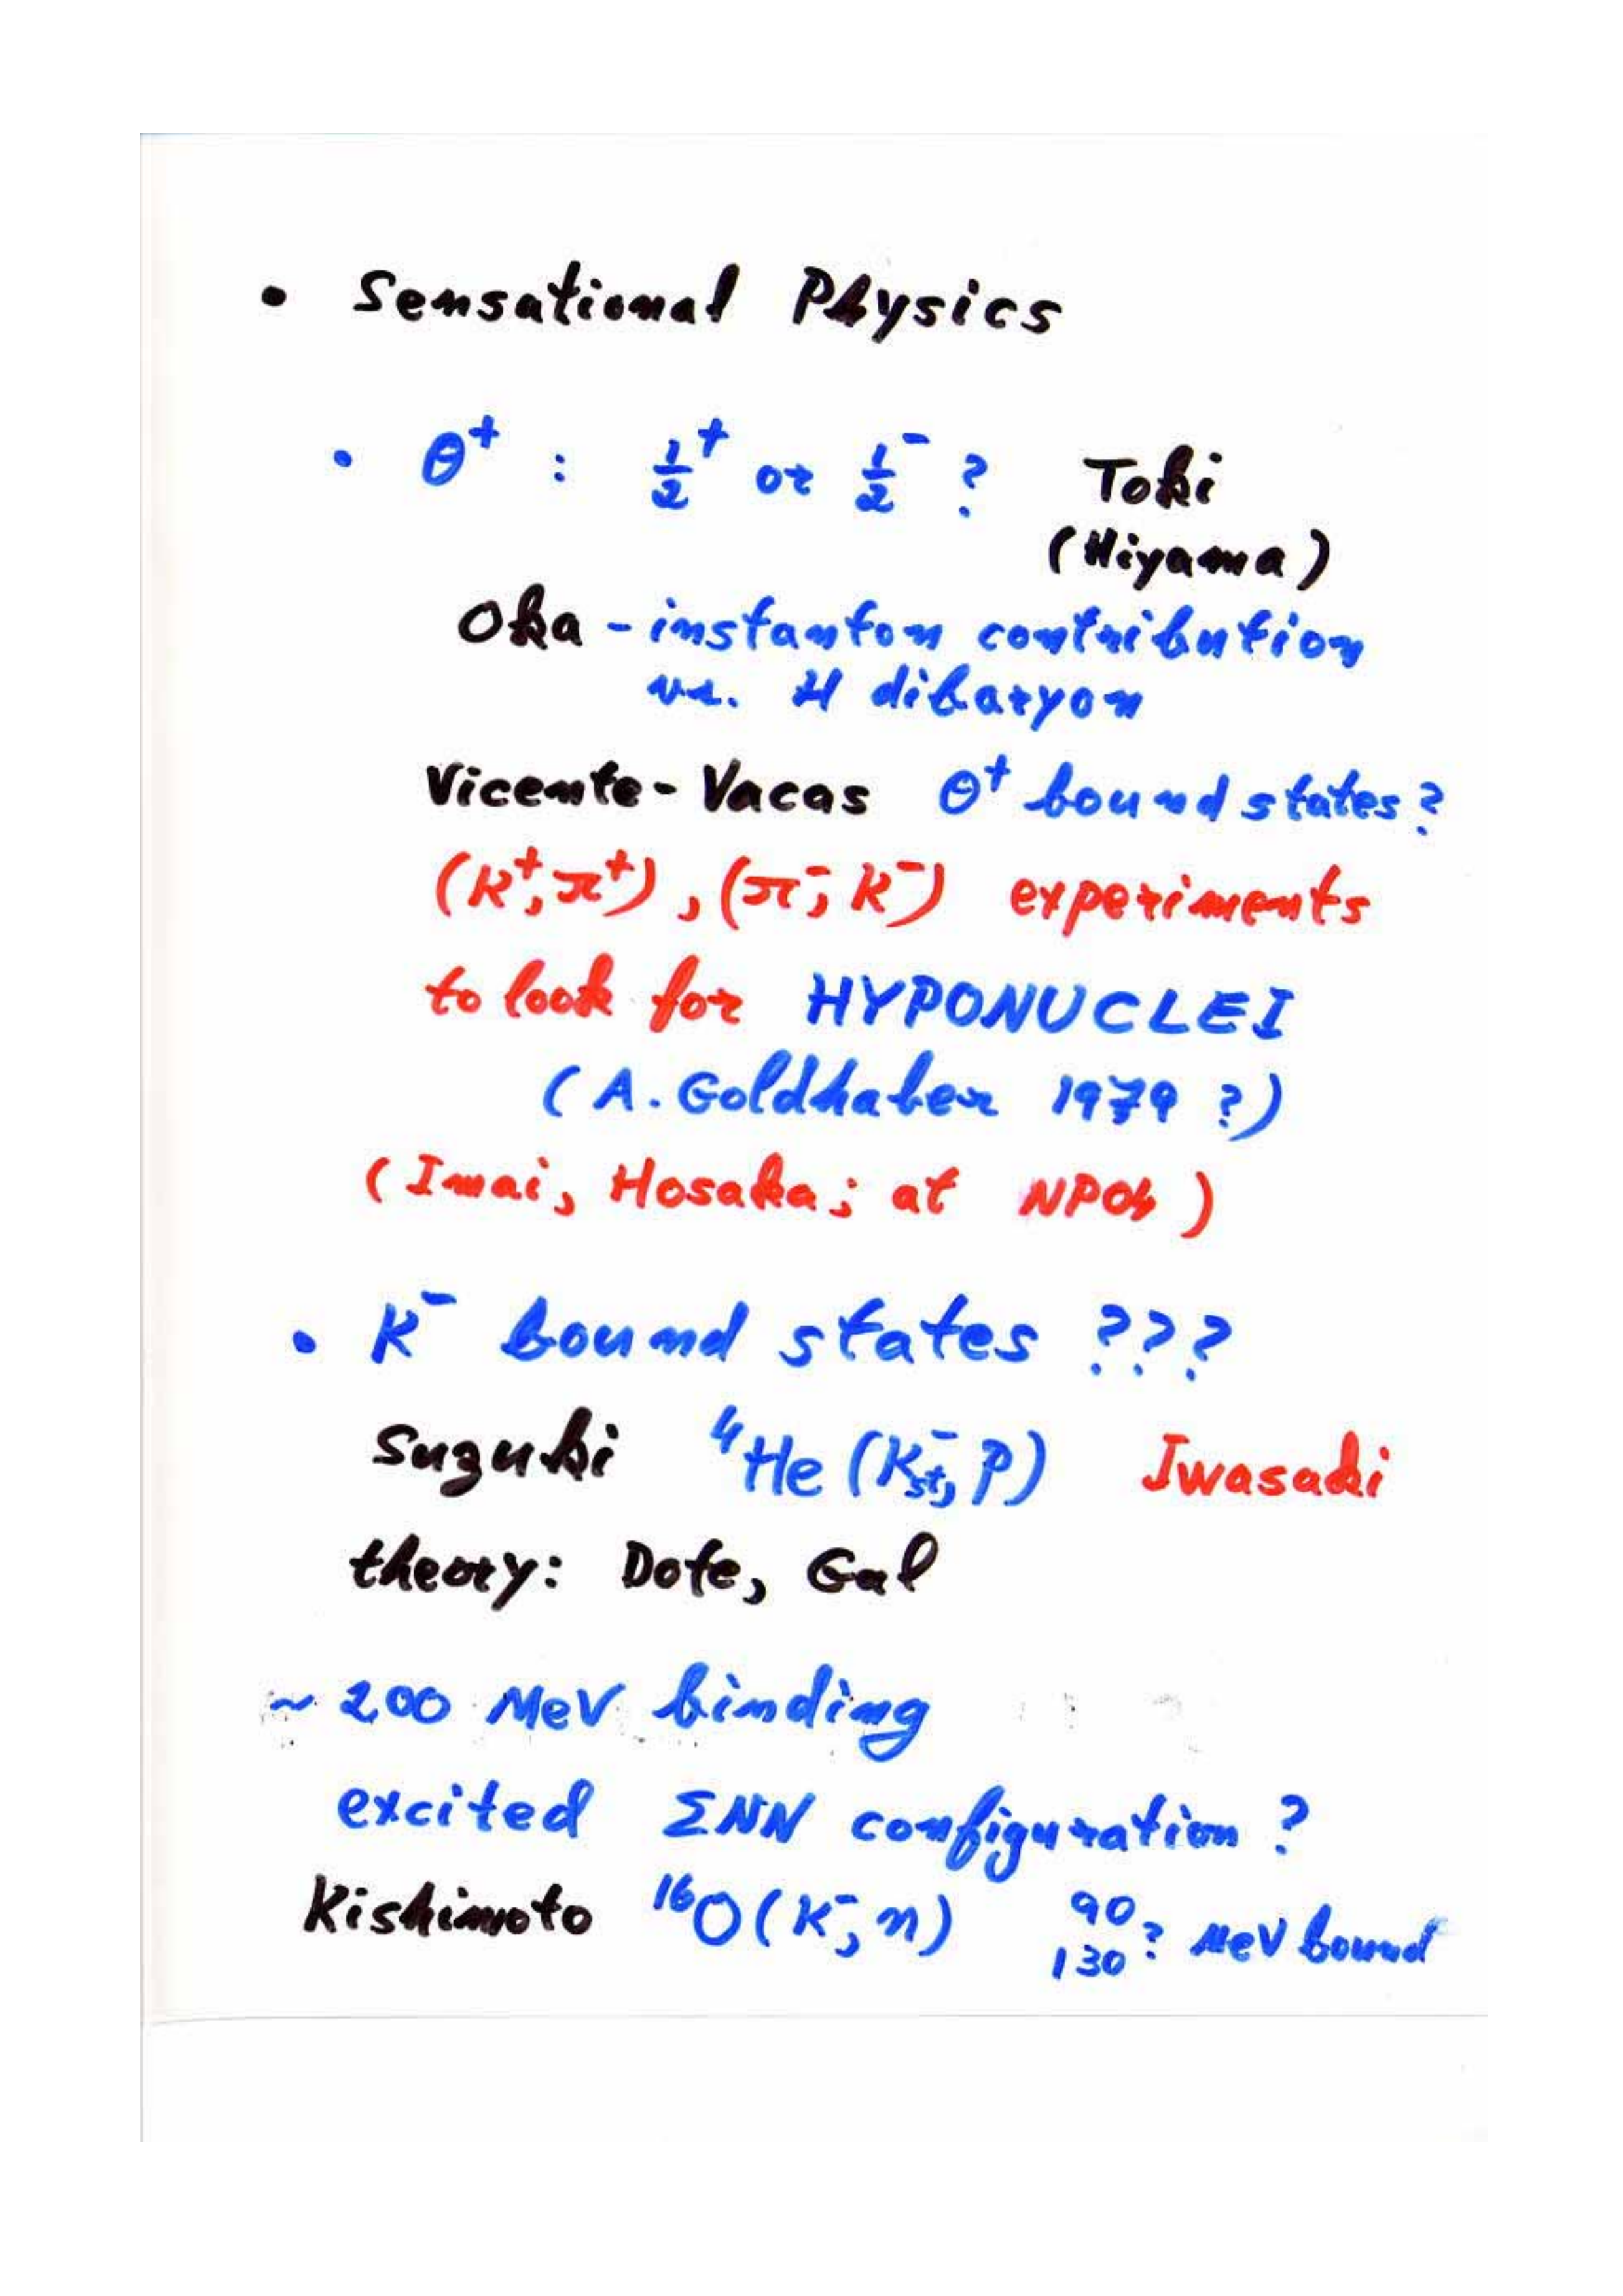 • Sensational Physics
• Θ⁺ : ½⁺ or ½⁻ ? Toki
(Hiyama)
Oka - instanton contribution
vs. H dibaryon
Vicente-Vacas Θ⁺ bound states?
(K⁺, π⁺), (π⁻, K⁻) experiments
to look for HYPONUCLEI
(A. Goldhaber 1979 ?)
(Imai, Hosaka; at NP04)
• K⁻ bound states ???
Suzuki ⁴He (K⁻st, p) Iwasaki
theory: Dote, Gal
~ 200 MeV binding
excited ΣNN configuration ?
Kishimoto ¹⁶O(K⁻, n) 90 130 ? MeV bound